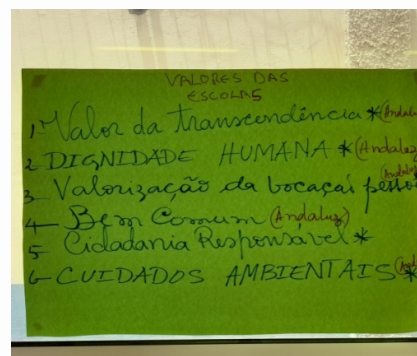 VALORES DAS
ESCOLAS
1, Valor da transcendência * (Andaluz
2 DIGNIDADE HUMANA * (Andaluz)
3- Valorização da vocaçaí pesso (Andaluz
4- Bem Comum (Andaluz)
5- Cidadania Responsável *
6- CUIDADOS AMBIENTAIS * (And